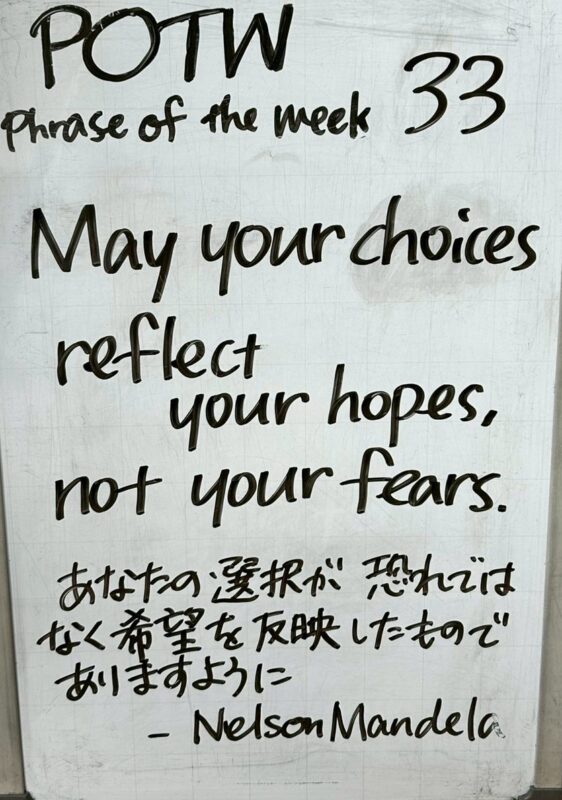 POTW
Phrase of the week 33
May your choices
reflect
your hopes,
not your fears.
あなたの選択が 恐れでは
なく希望を反映したもので
ありますように
- Nelson Mandela